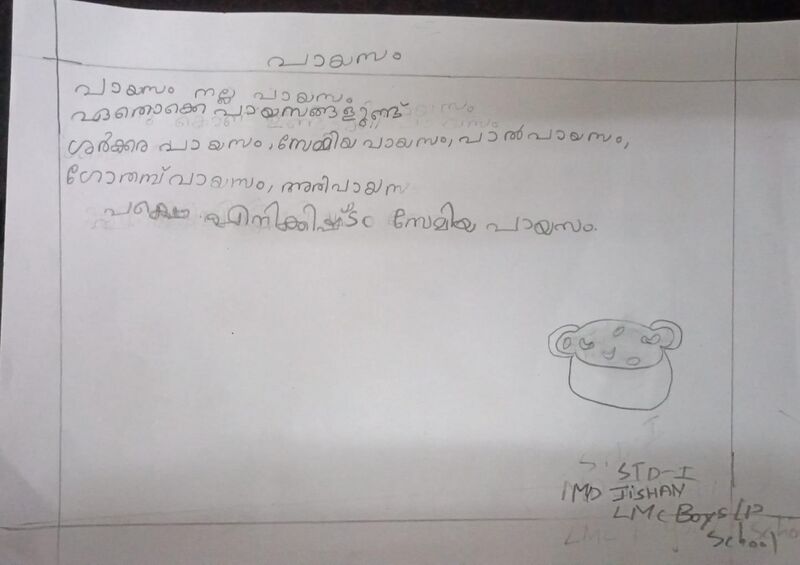 പായസം
പായസം നല്ല പായസം
ഏതൊക്കെ പായസങ്ങളുണ്ട്
ശർക്കര പായസം, സേമിയ പായസം, പാൽപായസം,
ഗോതമ്പ് പായസം, അരിപായസ
പക്ഷെ എനിക്കിഷ്ടം സേമിയ പായസം.
STD-I
MD JiSHAN
LMc Boys LP
School